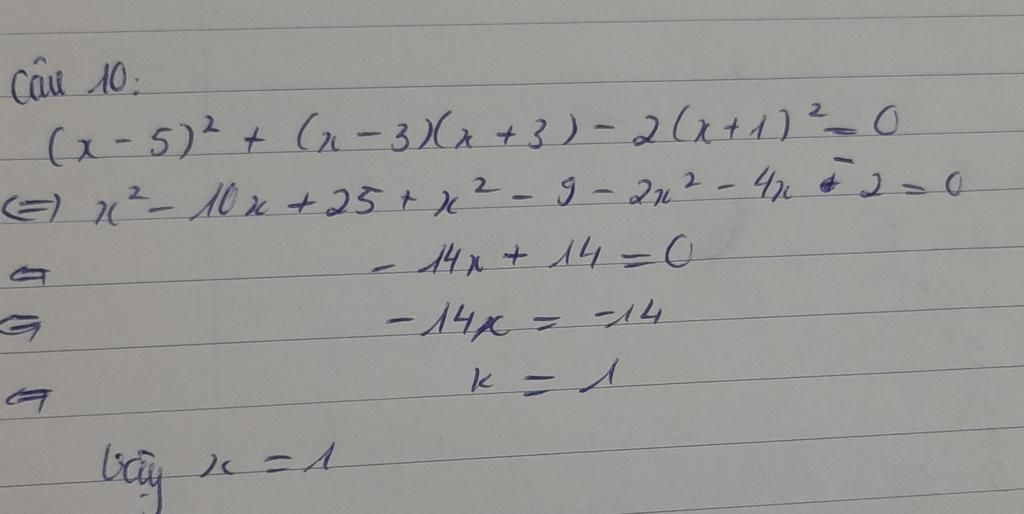 Câu 10:
(x - 5)² + (x - 3)(x + 3) - 2(x + 1)² = 0
(=) x² - 10x + 25 + x² - 9 - 2x² - 4x - 2 = 0
⇔ - 14x + 14 = 0
⇔ - 14x = -14
⇔ x = 1
Vậy x = 1